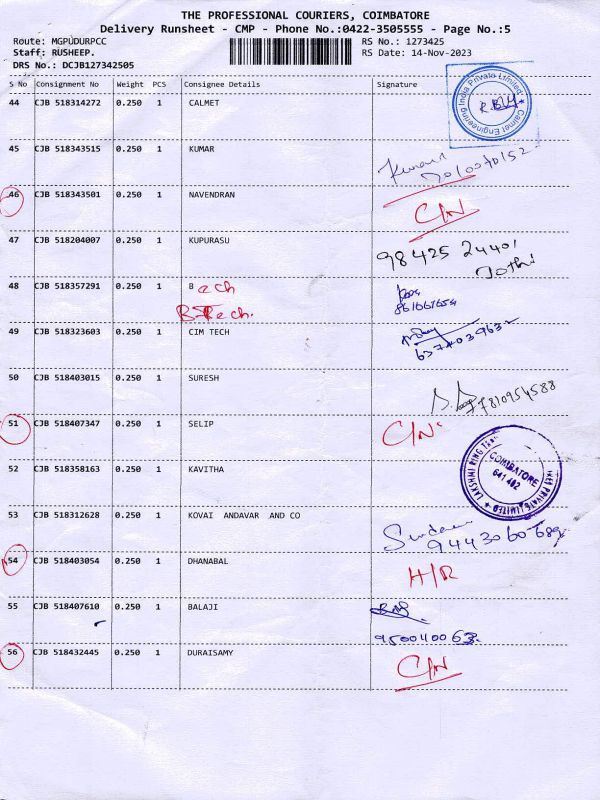 THE PROFESSIONAL COURIERS, COIMBATORE
Delivery Runsheet - CMP - Phone No.:0422-3505555 - Page No.:5
Route: MGPUDURPCC RS No.: 1273425
Staff: RUSHEEP. RS Date: 14-Nov-2023
DRS No.: DCJB127342505
S No Consignment No Weight PCS Consignee Details Signature
44 CJB 518314272 0.250 1 CALMET
Calmet Engineering India Private Limited
45 CJB 518343515 0.250 1 KUMAR
Kumar
46 CJB 518343501 0.250 1 NAVENDRAN
C/N
47 CJB 518204007 0.250 1 KUPURASU
98425 24401
Jothi
48 CJB 518357291 0.250 1 B ech
B-Tech.
49 CJB 518323603 0.250 1 CIM TECH
6374039632
50 CJB 518403015 0.250 1 SURESH
7810954588
51 CJB 518407347 0.250 1 SELIP
C/N
52 CJB 518358163 0.250 1 KAVITHA
LAKSHMI RING PRIVATE LIMITED
COIMBATORE
641 402
53 CJB 518312628 0.250 1 KOVAI ANDAVAR AND CO
54 CJB 518403054 0.250 1 DHANABAL
H/R
55 CJB 518407610 0.250 1 BALAJI
56 CJB 518432445 0.250 1 DURAISAMY
C/N